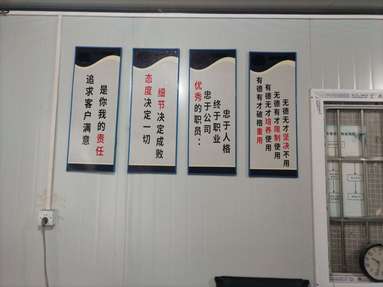 追求客户满意
是你我的责任
态度决定一切
细节决定成败
优秀的职员：
忠于公司
终于职业
忠于人格
有德有才破格重用
有德无才培养使用
无德有才限制使用
无德无才坚决不用